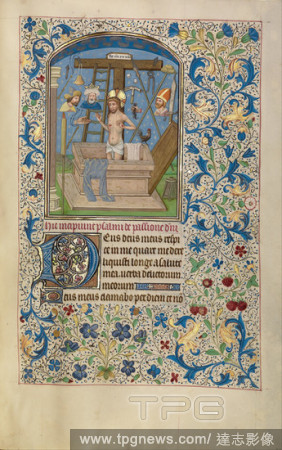 Hic incipiunt psalmi de passione dni
Deus deus meus respi
ce in me quare me dere
liquisti longe a salute
mea verba delictorum
meorum
Deus meus clamabo per diem et no
TPG
www.tpgnews.com/達志影像